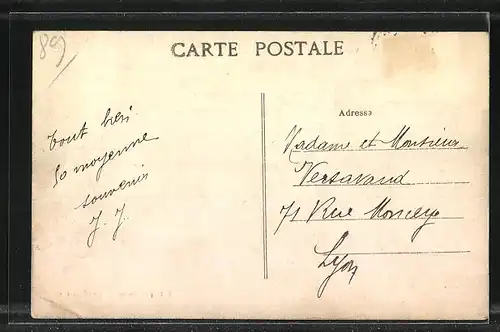 89
CARTE POSTALE
Adresse
tout
moyenne
souvenir
J. J.
Madame et Monsieur
Versavaud
71 Rue Moncey
Lyon